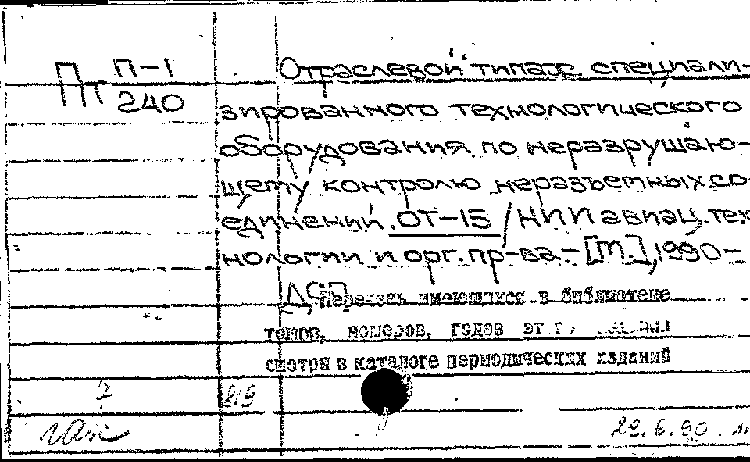 Пт П-1
240
Отраслевой типаж специали-
зированного технологического
оборудования по неразрушаю-
щему контролю неразъемных со-
единений. ОТ-15 / НИИ авиац. тех-
нологии и орг. пр-ва. - [М.], 1990 -
ДСП
Перечень имеющихся в библиотеке
томов, номеров, годов этого издания
смотри в каталоге периодических изданий
7 819
29.6.90.